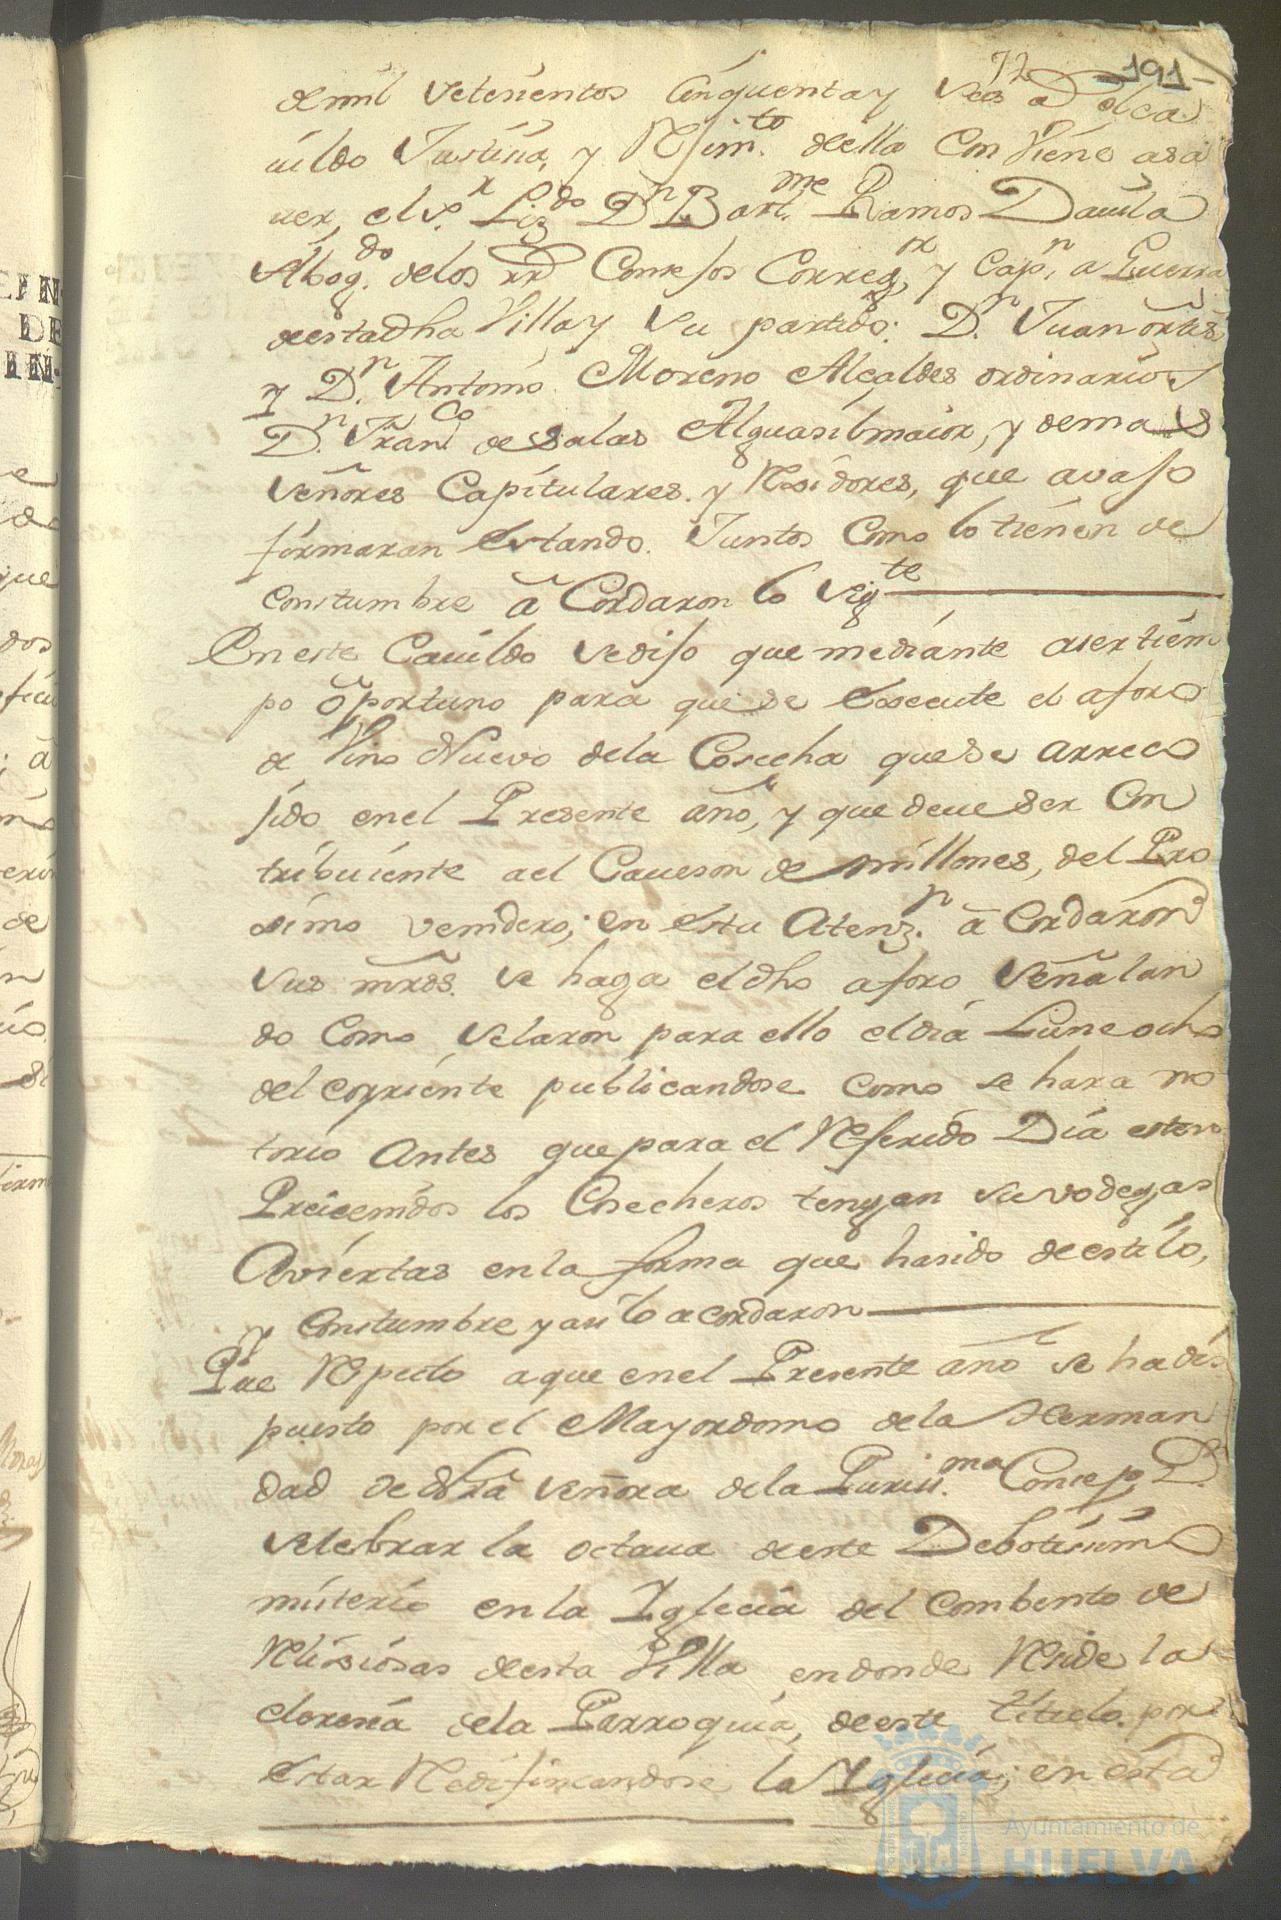 72 191
de mil setesientos sinquenta y seis a D el ca
uildo Justisia, y Rejim.to de ella Conbiene asa
uer, el s.r Liz.do D.n Bart.me Ramos Dauila
Abog.do de los rr.s Consejos Correg.r y Cap.n a Guerra
de esta dha Villa y su partido: D.n Juan ortis
y D.n Antonio Moreno Alcaldes ordinarios
D.n Fran.co de salas Alguasil maior, y demas
señores Capitulares. y Rexidores, que avajo
firmaran estando. Juntos Como lo tienen de
constumbre a Cordaron lo sig.te
En este Cauildo se dijo que mediante aser tiem
po oportuno para que se Execute el aforo
de Vino Nuevo de la Cosecha que se a rreco
jido en el Presente año, y que deue ser Con
tribuiente a el Caueson de millones, del Pro
simo venidero; en esta Atenz.n a Cordaron
sus mrds. se haga el dho aforo señalan
do Como señalaron para ello el dia Lune ocho
del corriente publicandose como se hara no
torio Antes que para el Referido Dia esten
Preuenidos los Cosecheros tengan su vodegas
Aviertas en la forma que ha sido de estilo,
y Constumbre y asi lo acordaron
Que Respecto a que en el Presente año se ha dis
puesto por el Mayordomo de la Herman
dad de nra señora de la Puris.ma Consep.n
selebrar la octaua de este Debotisimo
misterio en la Iglecia del Combento de
Relijiosas de esta Villa en donde Reside la
de la Parroquia, de este titulo. por
estar Redificandose la Iglecia; en esta
Ayuntamiento de
HUELVA